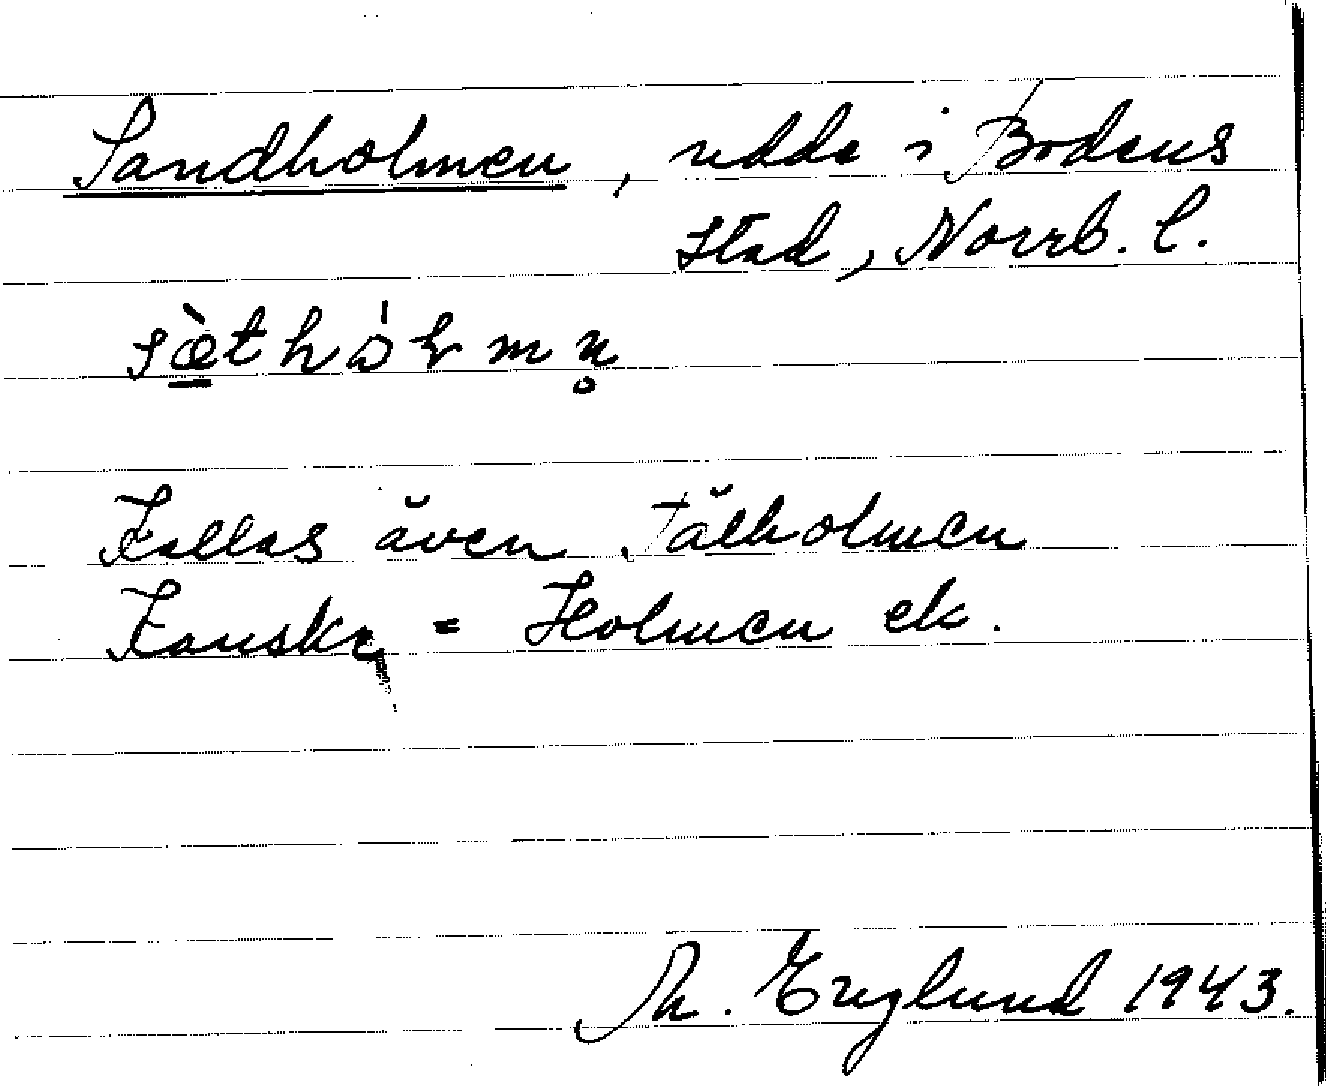 Sandholmen, udde i Bodens
stad, Norrb. l.
sæ̀thɔ́ɫmn̥
Kallas även Tälholmen
Kanske = Holmen ek.
Th. Englund 1943.